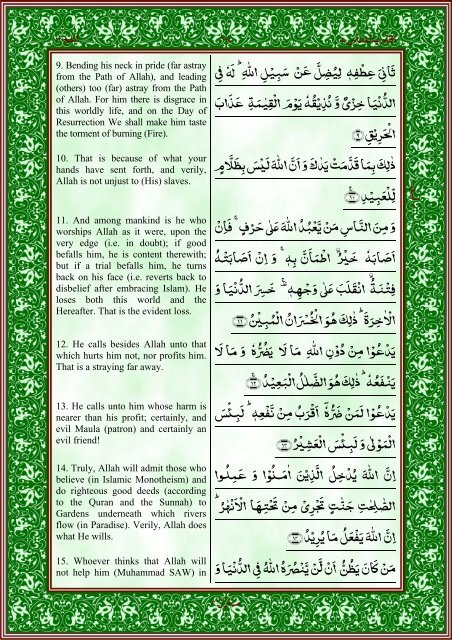 9. Bending his neck in pride (far astray
from the Path of Allah), and leading
(others) too (far) astray from the Path
of Allah. For him there is disgrace in
this worldly life, and on the Day of
Resurrection We shall make him taste
the torment of burning (Fire).
10. That is because of what your
hands have sent forth, and verily,
Allah is not unjust to (His) slaves.
11. And among mankind is he who
worships Allah as it were, upon the
very edge (i.e. in doubt); if good
befalls him, he is content therewith;
but if a trial befalls him, he turns
back on his face (i.e. reverts back to
disbelief after embracing Islam). He
loses both this world and the
Hereafter. That is the evident loss.
12. He calls besides Allah unto that
which hurts him not, nor profits him.
That is a straying far away.
13. He calls unto him whose harm is
nearer than his profit; certainly, and
evil Maula (patron) and certainly an
evil friend!
14. Truly, Allah will admit those who
believe (in Islamic Monotheism) and
do righteous good deeds (according
to the Quran and the Sunnah) to
Gardens underneath which rivers
flow (in Paradise). Verily, Allah does
what He wills.
15. Whoever thinks that Allah will
not help him (Muhammad SAW) in
ثَانِيَ عِطْفِهٖ لِيُضِلَّ عَنْ سَبِيْلِ اللّٰهِ ؕ لَهٗ فِي
الدُّنْيَا خِزْيٌ وَّ نُذِيْقُهٗ يَوْمَ الْقِيٰمَةِ عَذَابَ
الْحَرِيْقِ ﴿۹﴾
ذٰلِكَ بِمَا قَدَّمَتْ يَدٰكَ وَ اَنَّ اللّٰهَ لَيْسَ بِظَلَّامٍ
لِّلْعَبِيْدِ ﴿۱۰﴾
وَ مِنَ النَّاسِ مَنْ يَّعْبُدُ اللّٰهَ عَلٰى حَرْفٍ ۚ فَاِنْ
اَصَابَهٗ خَيْرُ اۨطْمَاَنَّ بِهٖ ۚ وَ اِنْ اَصَابَتْهُ
فِتْنَةُ اۨنْقَلَبَ عَلٰى وَجْهِهٖ ۚ خَسِرَ الدُّنْيَا وَ
الْاٰخِرَةَ ؕ ذٰلِكَ هُوَ الْخُسْرَانُ الْمُبِيْنُ ﴿۱۱﴾
يَدْعُوْا مِنْ دُوْنِ اللّٰهِ مَا لَا يَضُرُّهٗ وَ مَا لَا
يَنْفَعُهٗ ؕ ذٰلِكَ هُوَ الضَّلٰلُ الْبَعِيْدُ ﴿۱۲﴾
يَدْعُوْا لَمَنْ ضَرُّهٗۤ اَقْرَبُ مِنْ نَّفْعِهٖ ؕ لَبِئْسَ
الْمَوْلٰى وَ لَبِئْسَ الْعَشِيْرُ ﴿۱۳﴾
اِنَّ اللّٰهَ يُدْخِلُ الَّذِيْنَ اٰمَنُوْا وَ عَمِلُوا
الصّٰلِحٰتِ جَنّٰتٍ تَجْرِيْ مِنْ تَحْتِهَا الْاَنْهٰرُ ؕ
اِنَّ اللّٰهَ يَفْعَلُ مَا يُرِيْدُ ﴿۱۴﴾
مَنْ كَانَ يَظُنُّ اَنْ لَّنْ يَّنْصُرَهُ اللّٰهُ فِي الدُّنْيَا وَ